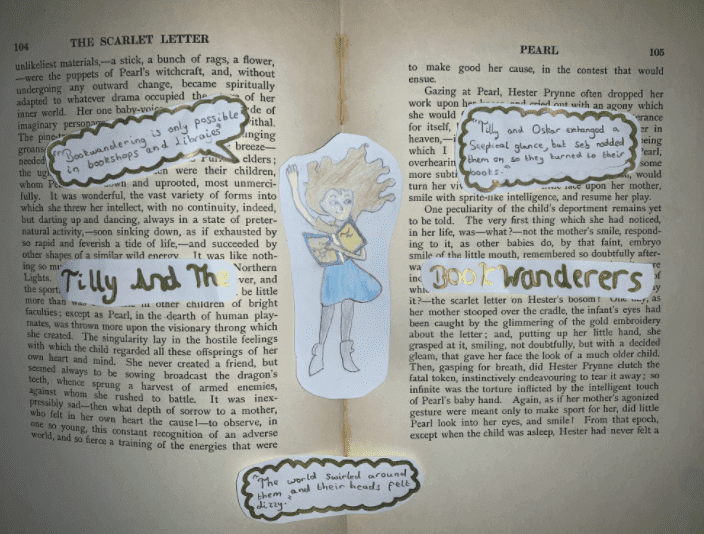 104 THE SCARLET LETTER
unlikeliest materials,—a stick, a bunch of rags, a flower,
—were the puppets of Pearl's witchcraft, and, without
undergoing any outward change, became spiritually
adapted to whatever drama occupied the of her
inner world. Her one baby-voice de of
imaginary person ithal.
The pine nging
groan breeze—
needed elders;
the ug en were their children,
whom Pe wn and uprooted, most unmerci-
fully. It was wonderful, the vast variety of forms into
which she threw her intellect, with no continuity, indeed,
but darting up and dancing, always in a state of preter-
natural activity,—soon sinking down, as if exhausted by
so rapid and feverish a tide of life,—and succeeded by
other shapes of a similar wild energy. It was like noth-
ing so m Northern
Lights. ver, and
the sport, be little
more than was in other children of bright
faculties; except as Pearl, in the dearth of human play-
mates, was thrown more upon the visionary throng which
she created. The singularity lay in the hostile feelings
with which the child regarded all these offsprings of her
own heart and mind. She never created a friend, but
seemed always to be sowing broadcast the dragon's
teeth, whence sprung a harvest of armed enemies,
against whom she rushed to battle. It was inex-
pressibly sad—then what depth of sorrow to a mother,
who felt in her own heart the cause!—to observe, in
one so young, this constant recognition of an adverse
world, and so fierce a training of the energies that were
"Bookwandering is only possible
in bookshops and libraies"
Tilly And The
BOOK Wanderers
"The world swirled around
them and their heads felt
dizzy."
PEARL 105
to make good her cause, in the contest that would
ensue.
Gazing at Pearl, Hester Prynne often dropped her
work upon her and cried out with an agony which
she would rance
for itself, er in
heaven,—i being
which I earl,
overhearin some
more subt would,
turn her vi face upon her mother,
smile with sprite-like intelligence, and resume her play.
One peculiarity of the child's department remains yet
to be told. The very first thing which she had noticed,
in her life, was—what?—not the mother's smile, respond-
ing to it, as other babies do, by that faint, embryo
smile of the little mouth, remembered so doubtfully after-
wa
inc
wh
it?—the scarlet letter on Hester's bosom! One day, as
her mother stooped over the cradle, the infant's eyes had
been caught by the glimmering of the gold embroidery
about the letter; and, putting up her little hand, she
grasped at it, smiling, not doubtfully, but with a decided
gleam, that gave her face the look of a much older child.
Then, gasping for breath, did Hester Prynne clutch the
fatal token, instinctively endeavouring to tear it away; so
infinite was the torture inflicted by the intelligent touch
of Pearl's baby hand. Again, as if her mother's agonized
gesture were meant only to make sport for her, did little
Pearl look into her eyes, and smile! From that epoch,
except when the child was asleep, Hester had never felt a
"Tilly and Oskar exhanged a
Sceptical glance, but Seb nodded
them on so they turned to their
books."